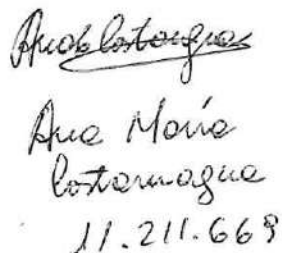 Ana Costamagna
Ana María
Costamagna
11.211.669